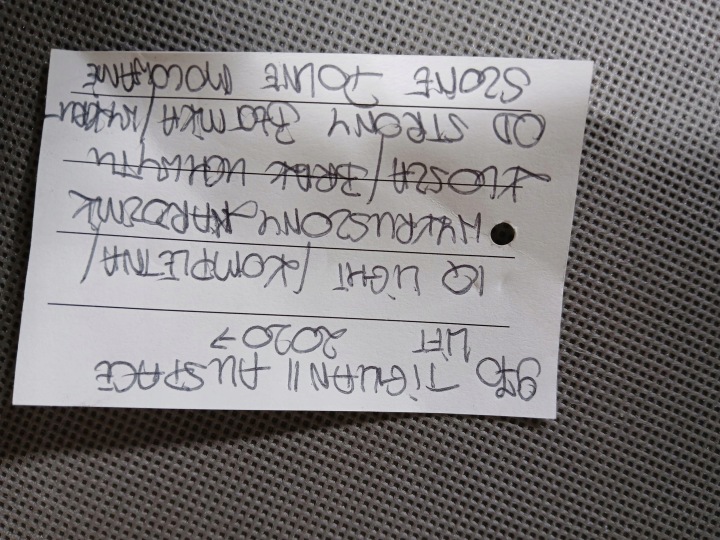 970 TIGUAN II ALLSPACE
LIFT 2020→
IQ LIGHT /KOMPLETNA/
WYKRUSZONY NAROŻNIK
KLOSZA /BRAK UCHWYTU
OD STRONY BŁOTNIKA/WYKRU-
SZONE DOLNE MOCOWANIE